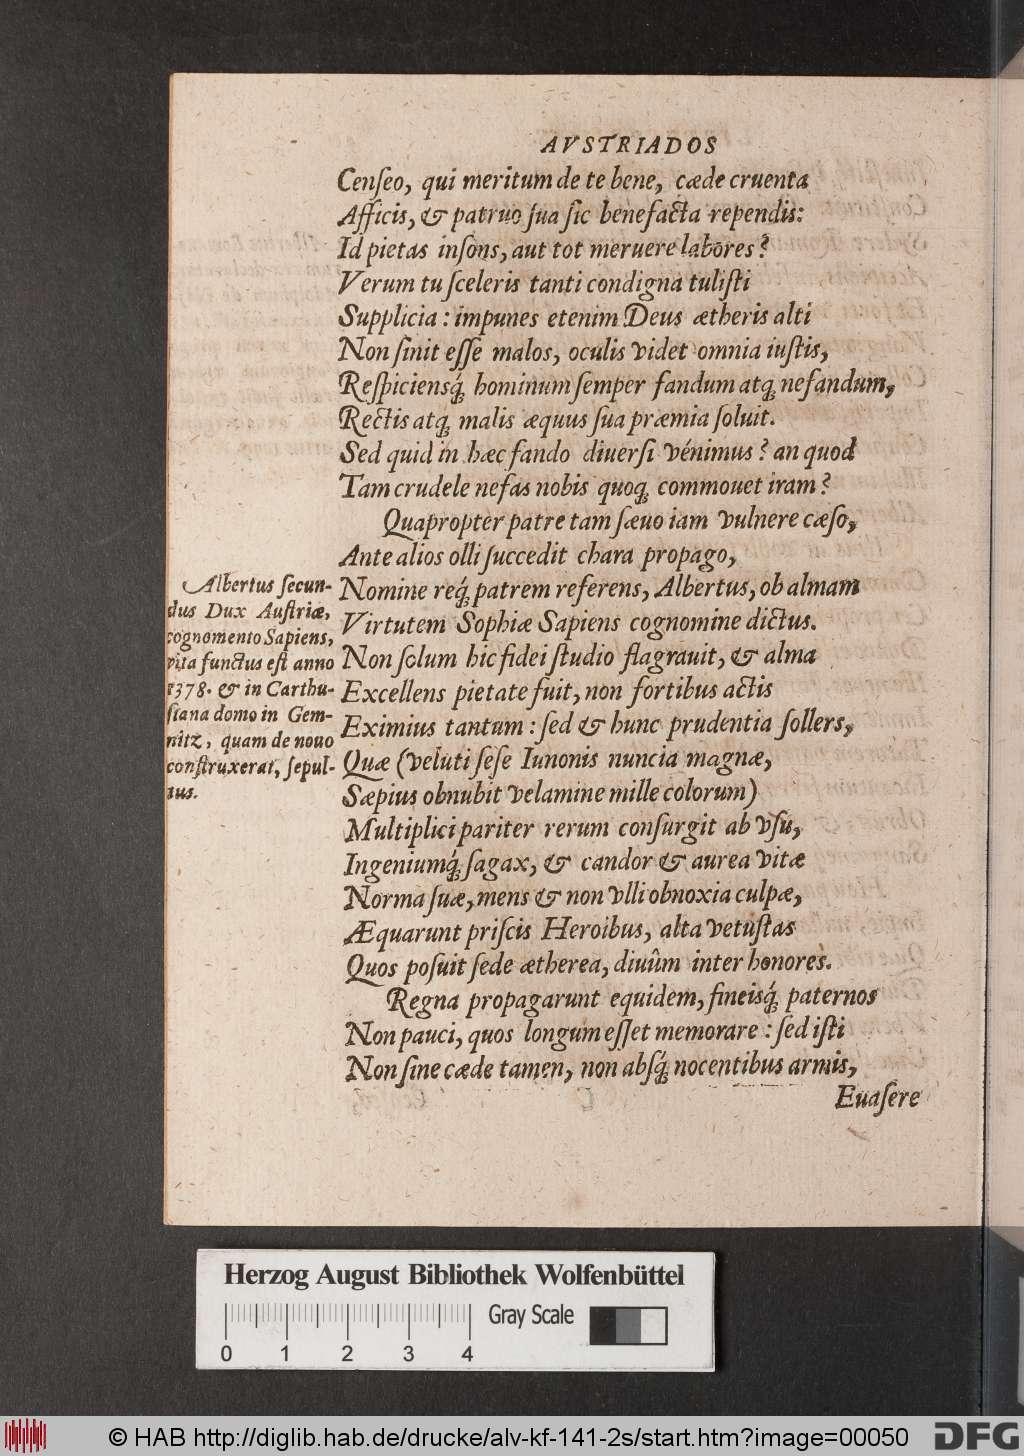 AVSTRIADOS
Cenſeo, qui meritum de te bene, cæde cruenta
Afficis, & patruo ſua ſic benefacta rependis:
Id pietas inſons, aut tot meruere labores?
Verum tu ſceleris tanti condigna tuliſti
Supplicia: impunes etenim Deus ætheris alti
Non ſinit eſſe malos, oculis videt omnia iuſtis,
Reſpiciensq́; hominum ſemper fandum atq; nefandum,
Rectis atq; malis æquus ſua præmia ſoluit.
Sed quid in hæc fando diuerſi vénimus? an quod
Tam crudele nefas nobis quoq; commouet iram?
Quapropter patre tam ſæuo iam vulnere cæſo,
Ante alios olli ſuccedit chara propago,
Nomine req́; patrem referens, Albertus, ob almam
Virtutem Sophiæ Sapiens cognomine dictus.
Non ſolum hic fidei ſtudio flagrauit, & alma
Excellens pietate fuit, non fortibus actis
Eximius tantum: ſed & hunc prudentia ſollers,
Quæ (veluti ſeſe Iunonis nuncia magnæ,
Sæpius obnubit velamine mille colorum)
Multiplici pariter rerum conſurgit ab vſu,
Ingeniumq́; ſagax, & candor & aurea vitæ
Norma ſuæ, mens & non vlli obnoxia culpæ,
Æquarunt priſcis Heroibus, alta vetuſtas
Quos poſuit ſede ætherea, diuûm inter honores.
Regna propagarunt equidem, fineisq́; paternos
Non pauci, quos longum eſſet memorare: ſed iſti
Non ſine cæde tamen, non abſq́; nocentibus armis,
Euaſere
Albertus ſecun-
dus Dux Auſtriæ,
cognomento Sapiens,
vita functus eſt anno
1378. & in Carthu-
ſiana domo in Gem-
nitz, quam de nouo
conſtruxerat, ſepul-
tus.
Herzog August Bibliothek Wolfenbüttel
Gray Scale
0 1 2 3 4
© HAB http://diglib.hab.de/drucke/alv-kf-141-2s/start.htm?image=00050
DFG